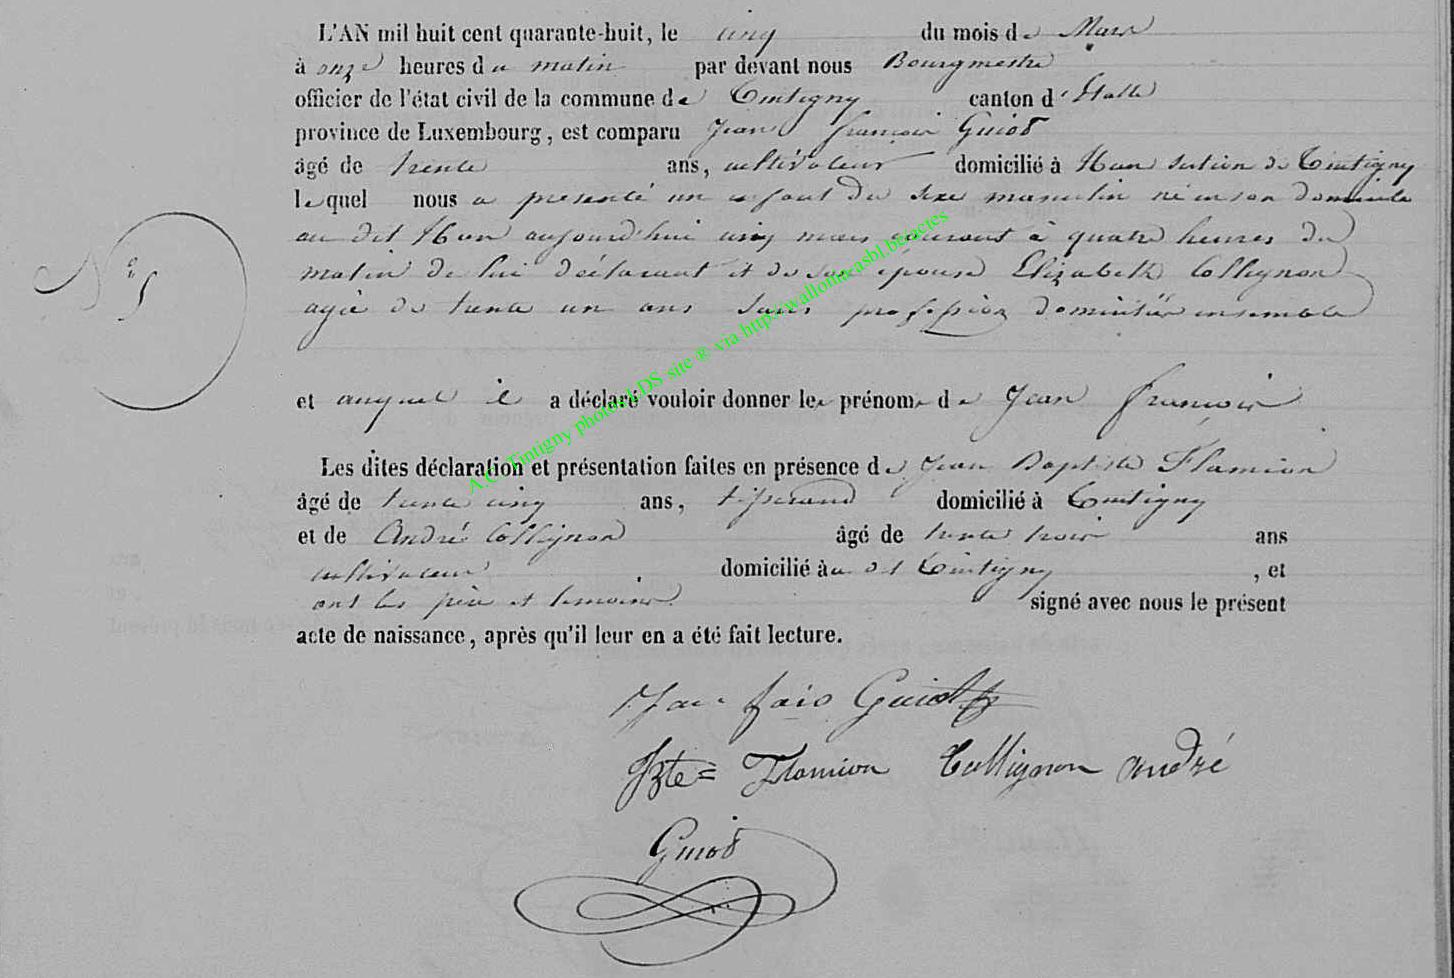 L'AN mil huit cent quarante-huit, le cinq du mois de Mars
à onze heures du matin par devant nous Bourgmestre
officier de l'état civil de la commune de Tintigny canton d'Etalle
province de Luxembourg, est comparu Jean François Guiot
âgé de trente ans, cultivateur domicilié à Han section de Tintigny
lequel nous a présenté un enfant du sexe masculin né en son domicile
au dit Han aujourd'hui cinq mars courant à quatre heures du
matin de lui déclarant et de son épouse Elizabeth Collignon
N° 5
agée de trente un ans sans profession domiciliés ensemble
et auquel il a déclaré vouloir donner les prénoms de Jean François
Les dites déclaration et présentation faites en présence de Jean Baptiste Flamion
âgé de trente cinq ans, tisserand domicilié à Tintigny
et de André Collignon âgé de trente trois ans
cultivateur domicilié à Tintigny, et
ont les père et témoins signé avec nous le présent
acte de naissance, après qu'il leur en a été fait lecture.
Jean fois Guiot
Bte= Flamion Collignon andré
Guiot
A.C. Tintigny photos LDS site ® via http://wallonia.asbl.be/actes